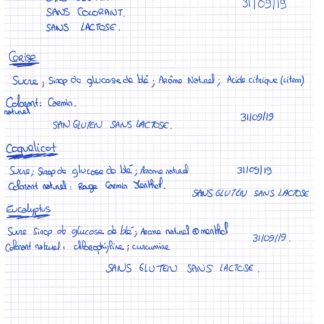 31/09/19
SANS COLORANT.
SANS LACTOSE.
Cerise
Sucre ; Sirop de glucose de blé ; Arôme Naturel ; Acide citrique (citron)
Colorant : Carmin.
naturel
31/09/19
SAN GLUTEN SANS LACTOSE.
Coquelicot
Sucre ; Sirop de glucose de blé ; Arome naturel
31/09/19
Colorant naturel : Rouge Carmin
SANS GLUTEN SANS LACTOSE
Eucalyptus
Sucre Sirop de glucose de blé ; Arome naturel menthol
31/09/19.
Colorant naturel : chlorophylline ; curcumine
SANS GLUTEN SANS LACTOSE.